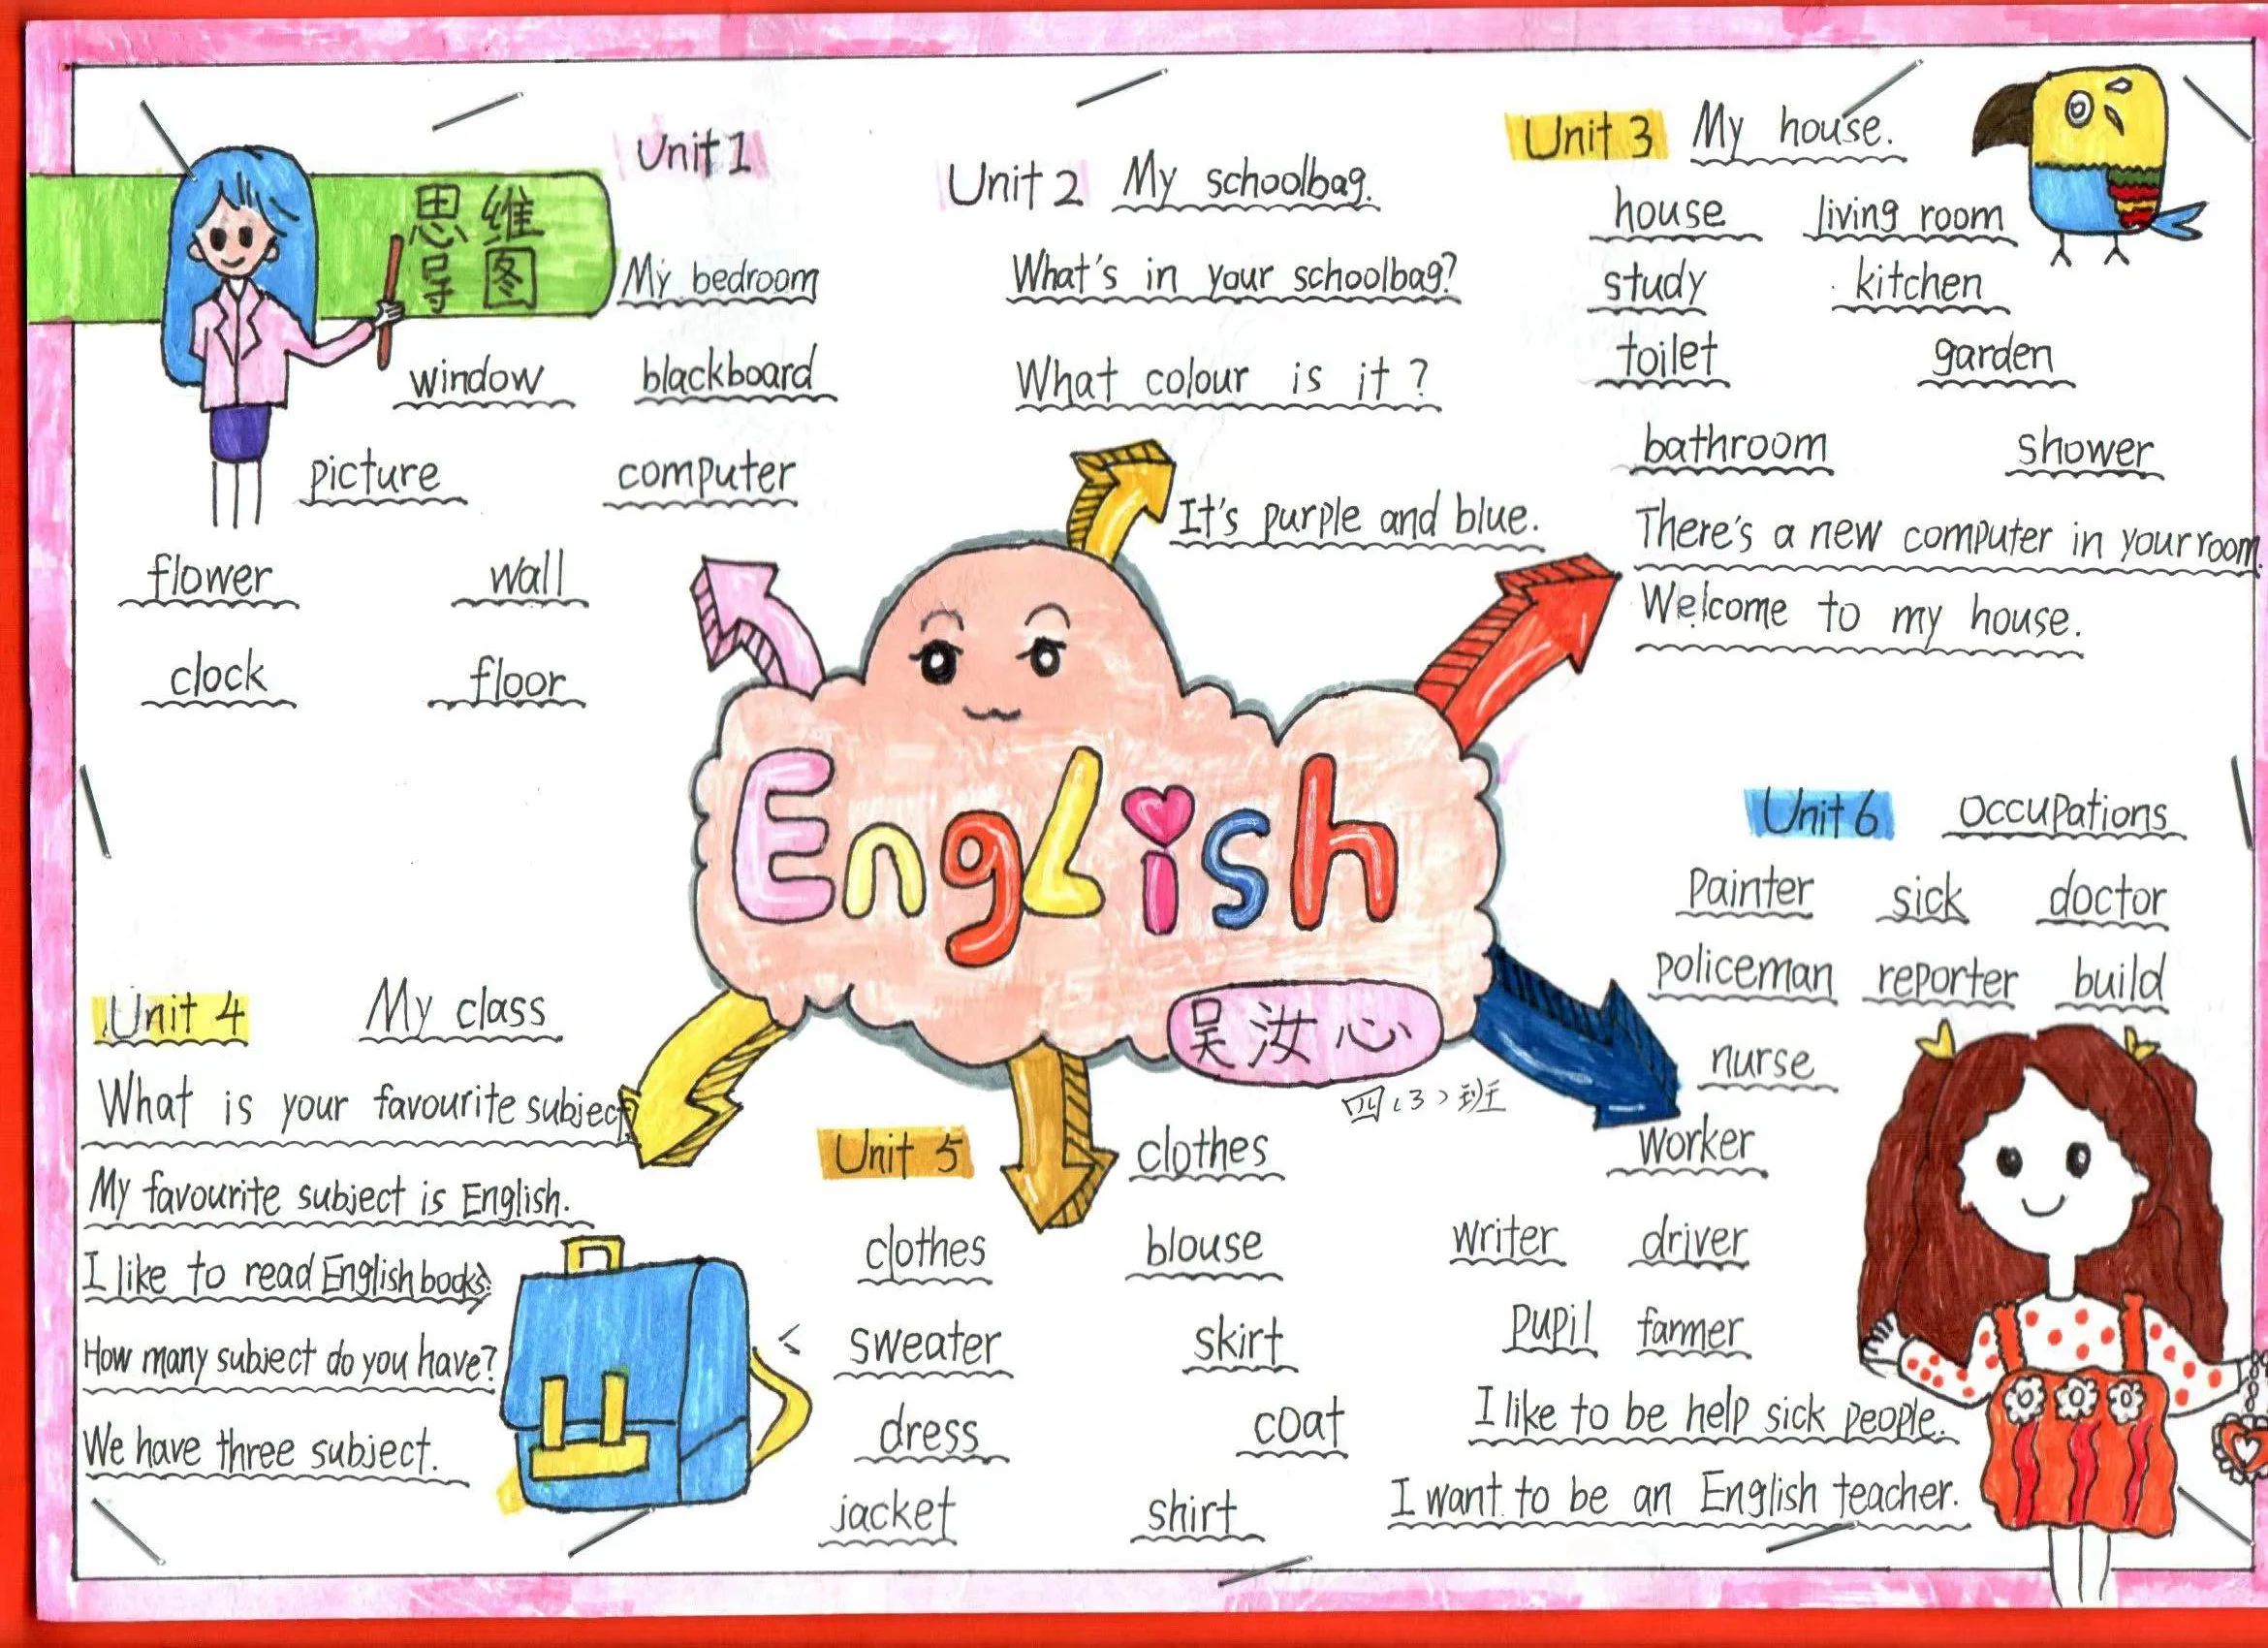 思维
导图
Unit 1
My bedroom
window blackboard
picture computer
flower wall
clock floor
Unit 2 My schoolbag.
What's in your schoolbag?
What colour is it?
It's purple and blue.
Unit 3 My house.
house living room
study kitchen
toilet garden
bathroom shower
There's a new computer in your room.
Welcome to my house.
English
吴汝心
四(3)班
Unit 4 My class
What is your favourite subject?
My favourite subject is English.
I like to read English books.
How many subject do you have?
We have three subject.
Unit 5 clothes
clothes blouse
sweater skirt
dress coat
jacket shirt
Unit 6 Occupations
Painter sick doctor
policeman reporter build
nurse
worker
writer driver
Pupil farmer
I like to be help sick people.
I want to be an English teacher.